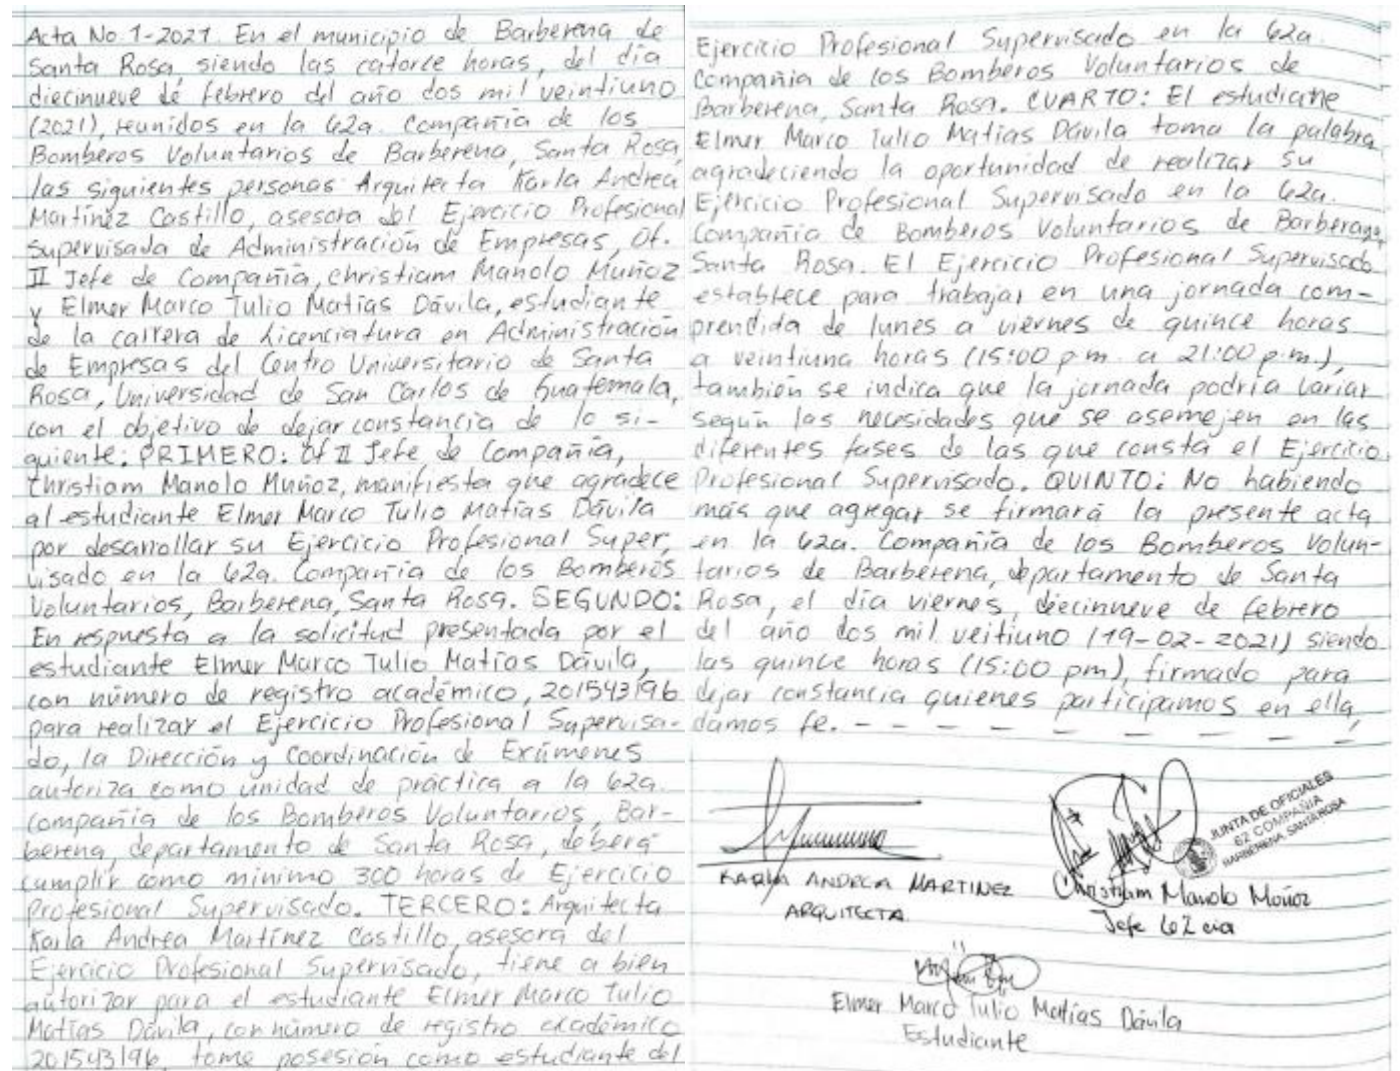 Acta No. 1-2021. En el municipio de Barberena de
Santa Rosa, siendo las catorce horas, del día
diecinueve de febrero del año dos mil veintiuno
(2021), reunidos en la 62a. Compañía de los
Bomberos Voluntarios de Barberena, Santa Rosa,
las siguientes personas Arquitecta Karla Andrea
Martínez Castillo, asesora del Ejercicio Profesional
Supervisada de Administración de Empresas, Of.
II Jefe de Compañía, Christiam Manolo Muñoz
y Elmer Marco Tulio Matías Dávila, estudiante
de la carrera de Licenciatura en Administración
de Empresas del Centro Universitario de Santa
Rosa, Universidad de San Carlos de Guatemala,
con el objetivo de dejar constancia de lo si-
guiente: PRIMERO: Of II Jefe de Compañía,
Christiam Manolo Muñoz, manifiesta que agradece
al estudiante Elmer Marco Tulio Matías Dávila
por desarrollar su Ejercicio Profesional Super,
visado en la 62a. Compañía de los Bomberos
Voluntarios, Barberena, Santa Rosa. SEGUNDO:
En respuesta a la solicitud presentada por el
estudiante Elmer Marco Tulio Matías Dávila,
con número de registro académico, 201543196
para realizar el Ejercicio Profesional Supervisa-
do, la Dirección y Coordinación de Exámenes
autoriza como unidad de práctica a la 62a.
Compañía de los Bomberos Voluntarios, Bar-
berena, departamento de Santa Rosa, deberá
cumplir como mínimo 300 horas de Ejercicio
Profesional Supervisado. TERCERO: Arquitecta
Karla Andrea Martínez Castillo, asesora del
Ejercicio Profesional Supervisado, tiene a bien
autorizar para el estudiante Elmer Marco Tulio
Matías Dávila, con número de registro académico
201543196, tome posesión como estudiante del
Ejercicio Profesional Supervisado en la 62a.
Compañía de los Bomberos Voluntarios de
Barberena, Santa Rosa. CUARTO: El estudiante
Elmer Marco Tulio Matías Dávila toma la palabra
agradeciendo la oportunidad de realizar su
Ejercicio Profesional Supervisado en la 62a.
Compañía de Bomberos Voluntarios de Barberana,
Santa Rosa. El Ejercicio Profesional Supervisado
establece para trabajar en una jornada com-
prendida de lunes a viernes de quince horas
a veintiuna horas (15:00 p.m. a 21:00 p.m.),
también se indica que la jornada podría variar
según las necesidades que se asemejen en las
diferentes fases de las que consta el Ejercicio
Profesional Supervisado. QUINTO: No habiendo
más que agregar se firmará la presente acta
en la 62a. Compañía de los Bomberos Volun-
tarios de Barberena, departamento de Santa
Rosa, el día viernes, diecinueve de febrero
del año dos mil veitiuno (19-02-2021) siendo
las quince horas (15:00 pm), firmado para
dejar constancia quienes participamos en ella,
damos fe. - - - - - - - - -
JUNTA DE OFICIALES
62 COMPAÑIA
BARBERENA, SANTA ROSA
KARLA ANDREA MARTINEZ
ARQUITECTA
Christiam Manolo Muñoz
Jefe 62 cia
Elmer Marco Tulio Matías Dávila
Estudiante